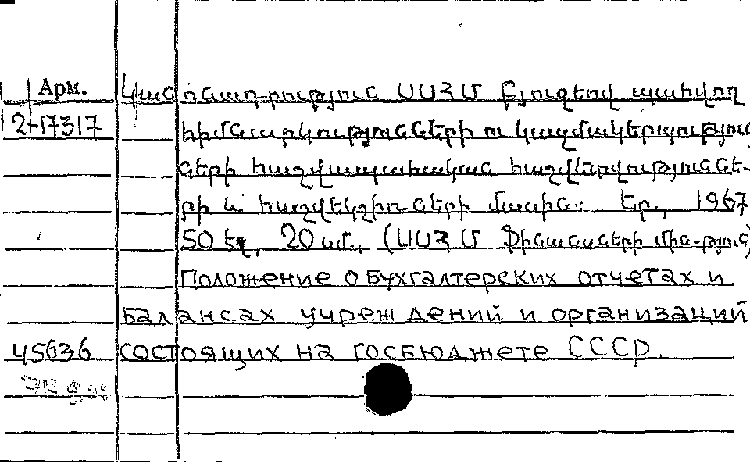 Арм. Կանոնադրություն ՍՍՀՄ բյուջեով պահվող
2-17317 հիմնարկությունների ու կազմակերպություն
ների հաշվապահական հաշվետվություննե-
րի և հաշվեկշիռների մասին: Եր., 1967
50 էջ, 20 սմ., (ՍՍՀՄ Ֆինանսների մին-թյուն)
Положение о бухгалтерских отчетах и
балансах учреждений и организаций
45636 состоящих на госбюджете СССР.